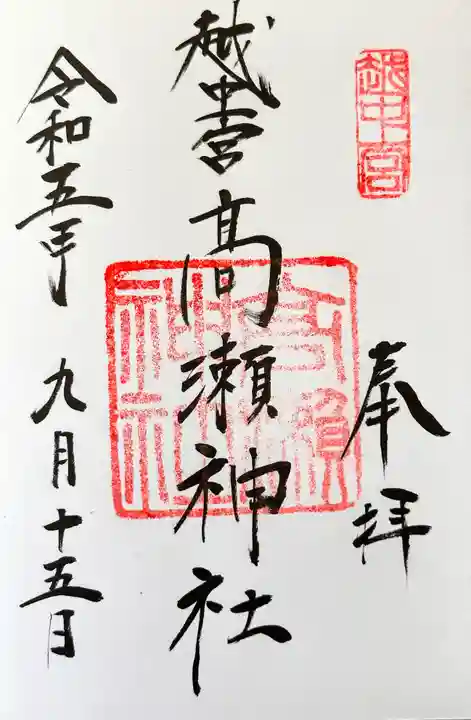 越中宮
奉拝
越中一宮 高瀬神社
高瀬神社
令和五年 九月十五日